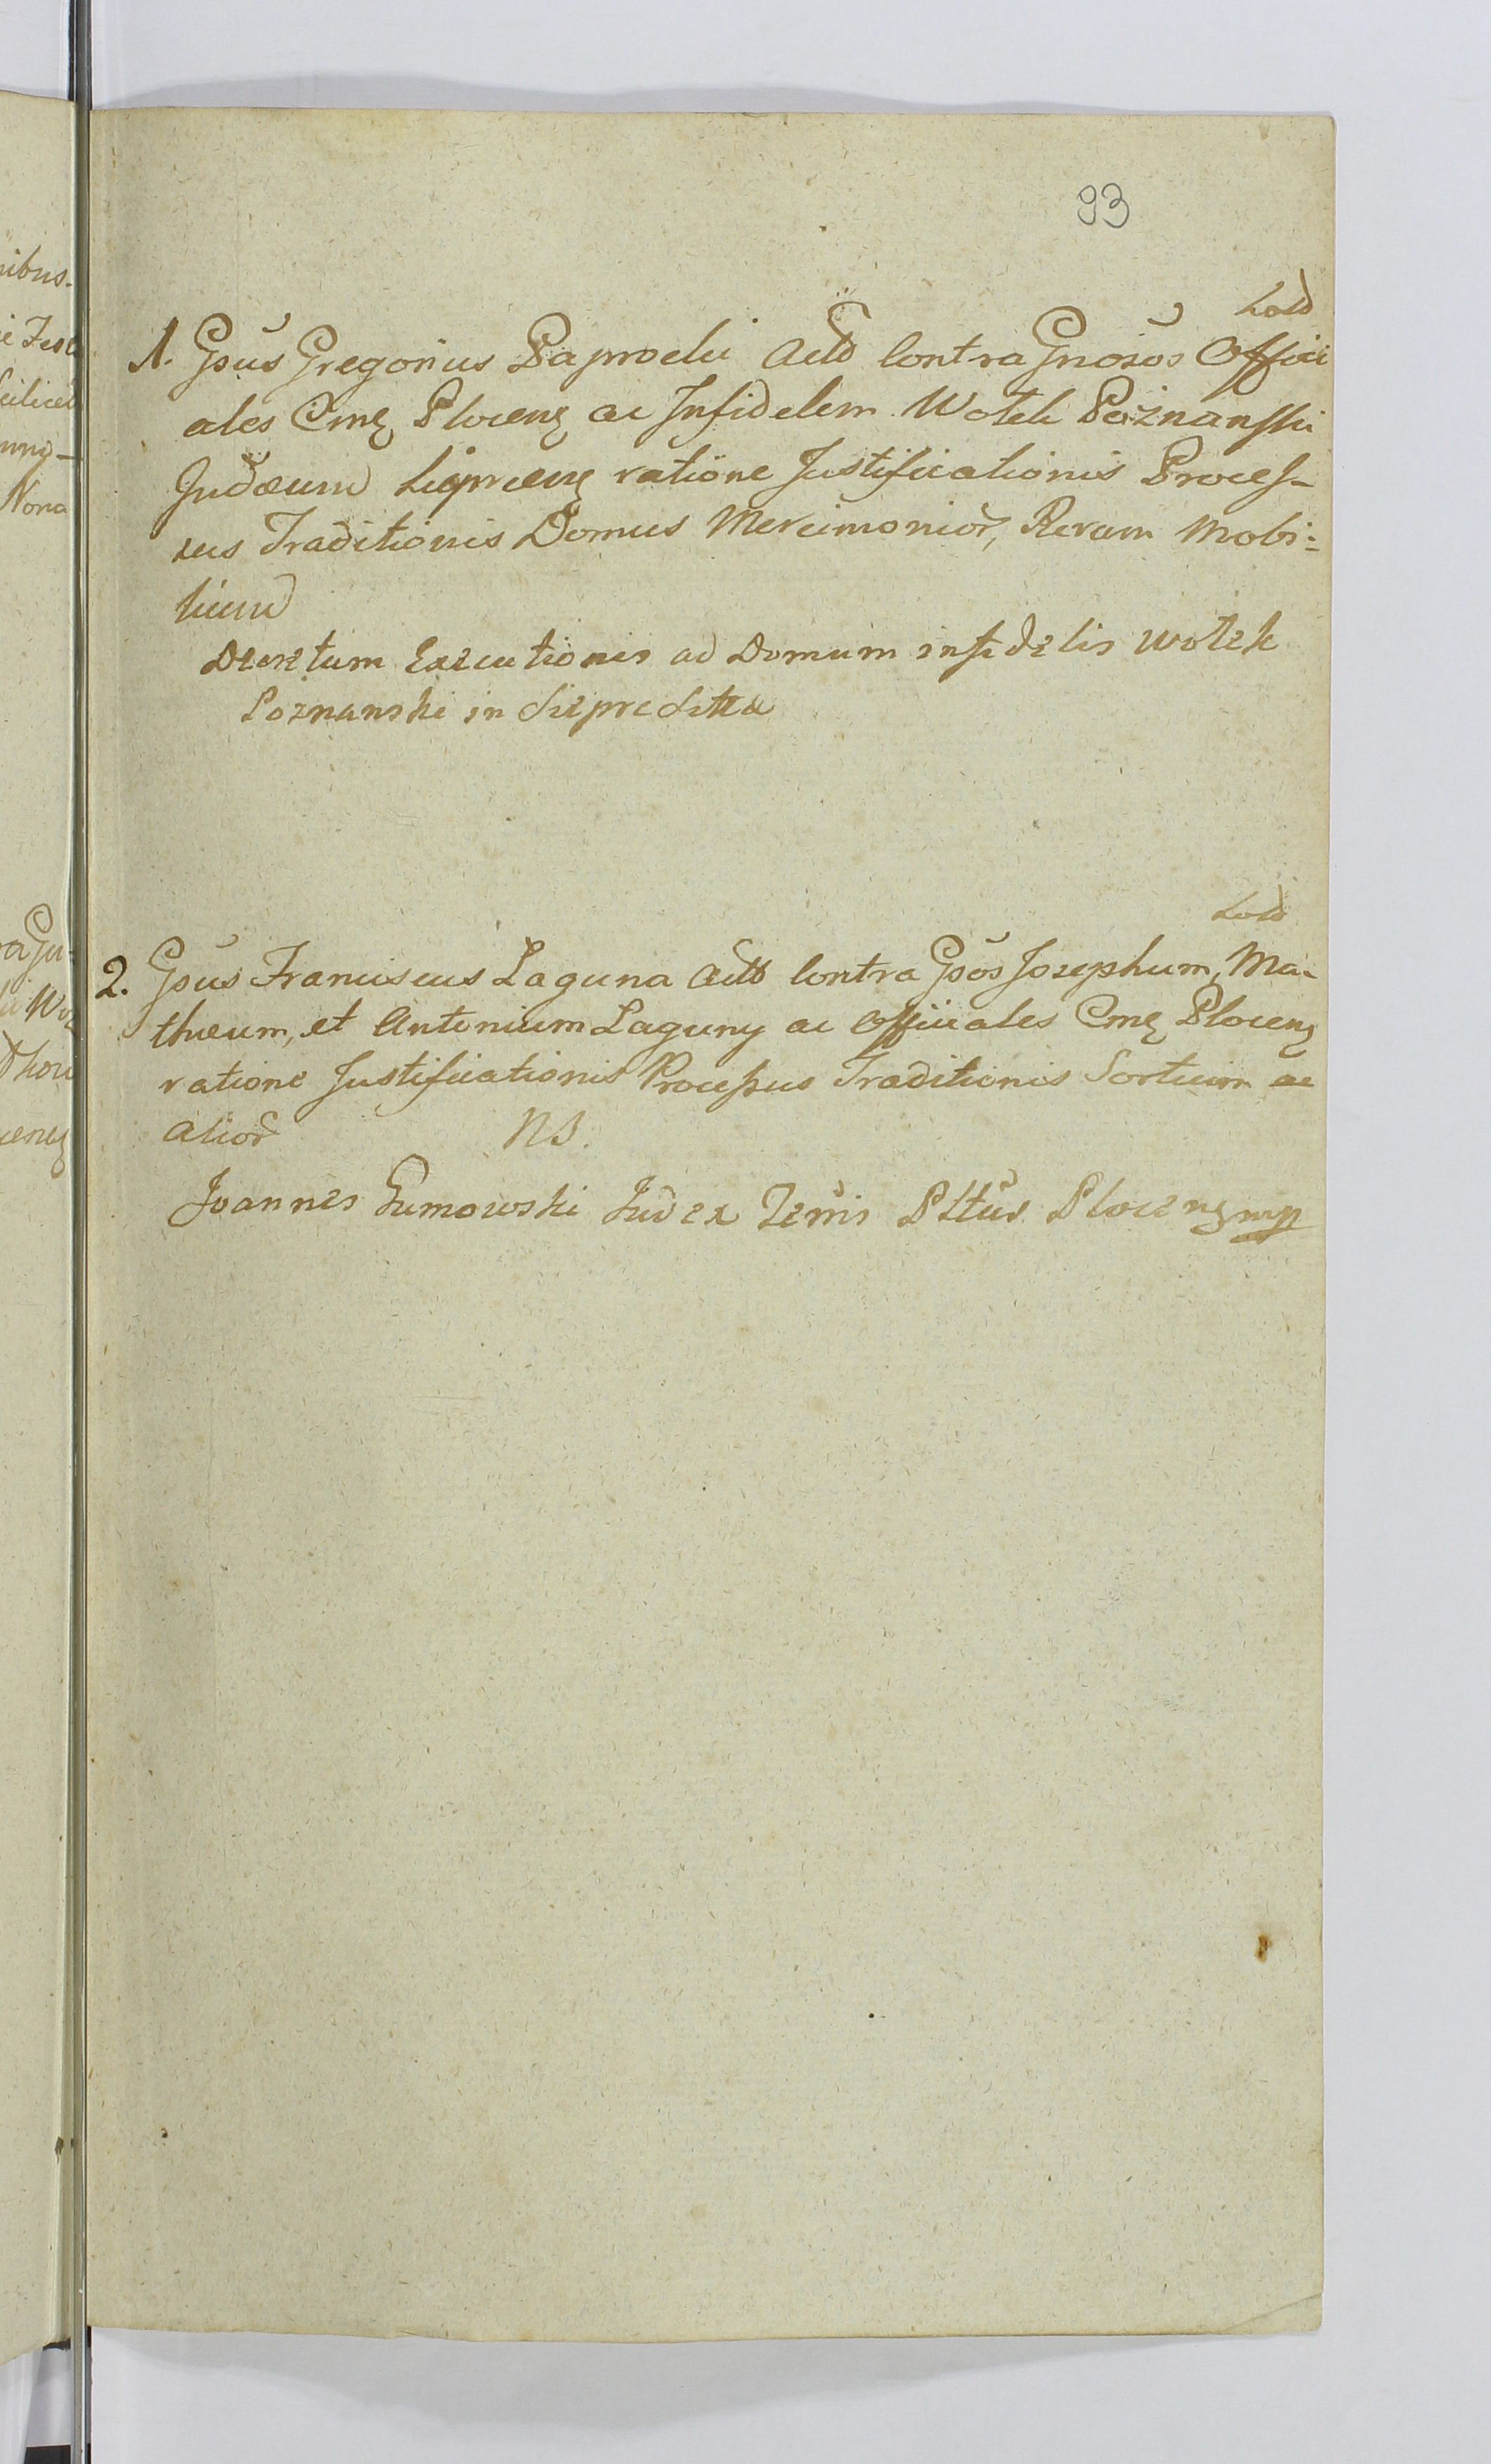 93
Lord
1. Gsus Gregorius Paprocki Actb Contra Gnosos Offici
ales Cmę Plocenę ac Infidelem Wolek Poznanski
Judæum Lieprcenę ratione Justificationis Proces-
sus Traditionis Domus Mercimonior, Rerum Mobi-
lium
Decretum Executionis ad Domum infidelis Wolek
Poznanski in Siepre sitta
Lord
2. Gsus Franciscus Laguna Actb Contra Gsos Josephum, Ma-
thæum, et Antonium Laguny ac Officiales Cmę Plocenę
ratione Justificationis Processus Traditionis Sortium ac
alior NS.
Joannes Gumowski Judex Terris Pltus Plocenę mp